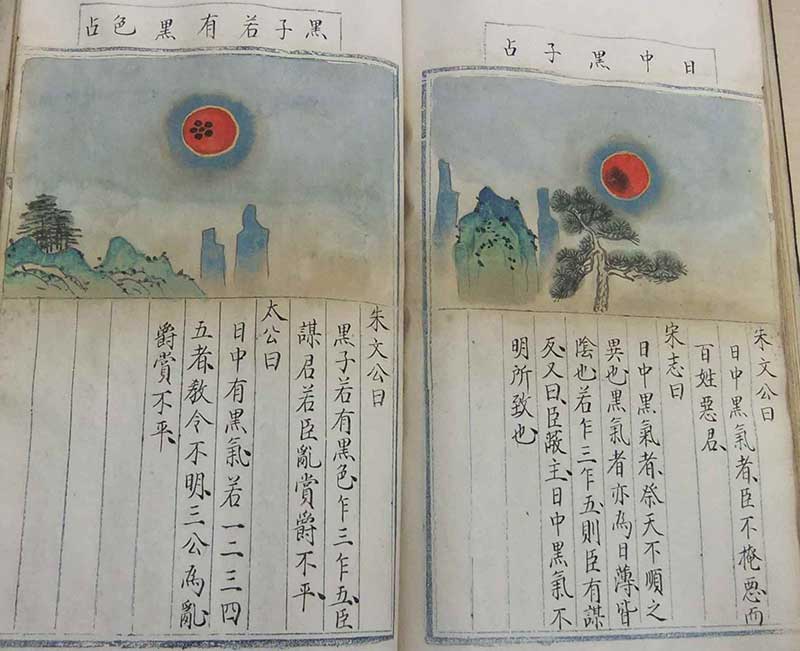 日中黑子占
朱文公曰
日中黑氣者、臣不掩惡、而
百姓惡君、
宋志曰
日中黑氣者、祭天不順之
異也、黑氣者亦為日薄皆
陰也、若乍三乍五、則臣有謀
反、又曰、臣蔽主、日中黑氣不
明所致也、
黑子若有黑色占
朱文公曰
黑子若有黑色乍三乍五、臣
謀君若臣亂賞爵不平、
太公曰
日中有黑氣、若一二三四
五者、教令不明、三公為亂、
爵賞不平、